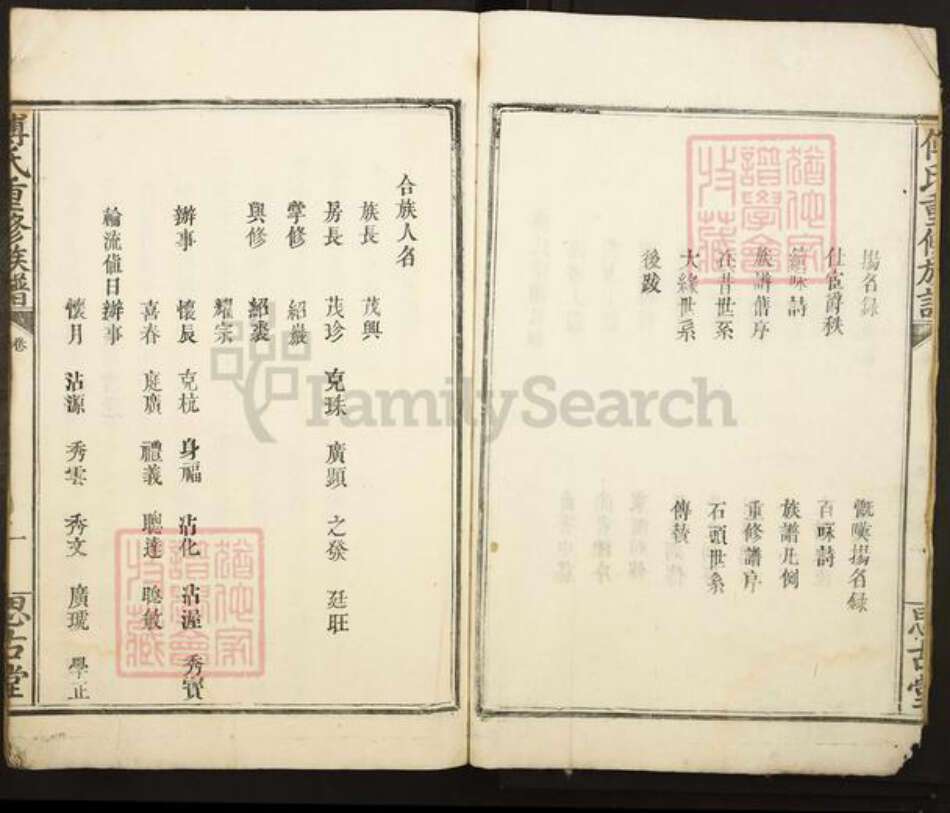 傅氏重修族譜
思古堂
揚名錄
慨喚揚名錄
仕宦爵秩
百咏詩
續咏詩
族譜凡例
族譜舊序
重修譜序
在昔世系
石頭世系
大緣世系
傳贊
後跋
合族人名
族長 茂興
房長 茂珍 克珠 廣顯 之發 廷旺
掌修 紹巖
與修 紹裘
耀宗
辦事 懷辰 克杭 身福 沾化 沾渥 秀實
喜春 庭廣 禮義 聰達 聰敏
輪流值日辦事
懷月 沾源 秀雲 秀文 廣琥 學正
傅氏重修族譜
卷
一
思古堂
FamilySearch